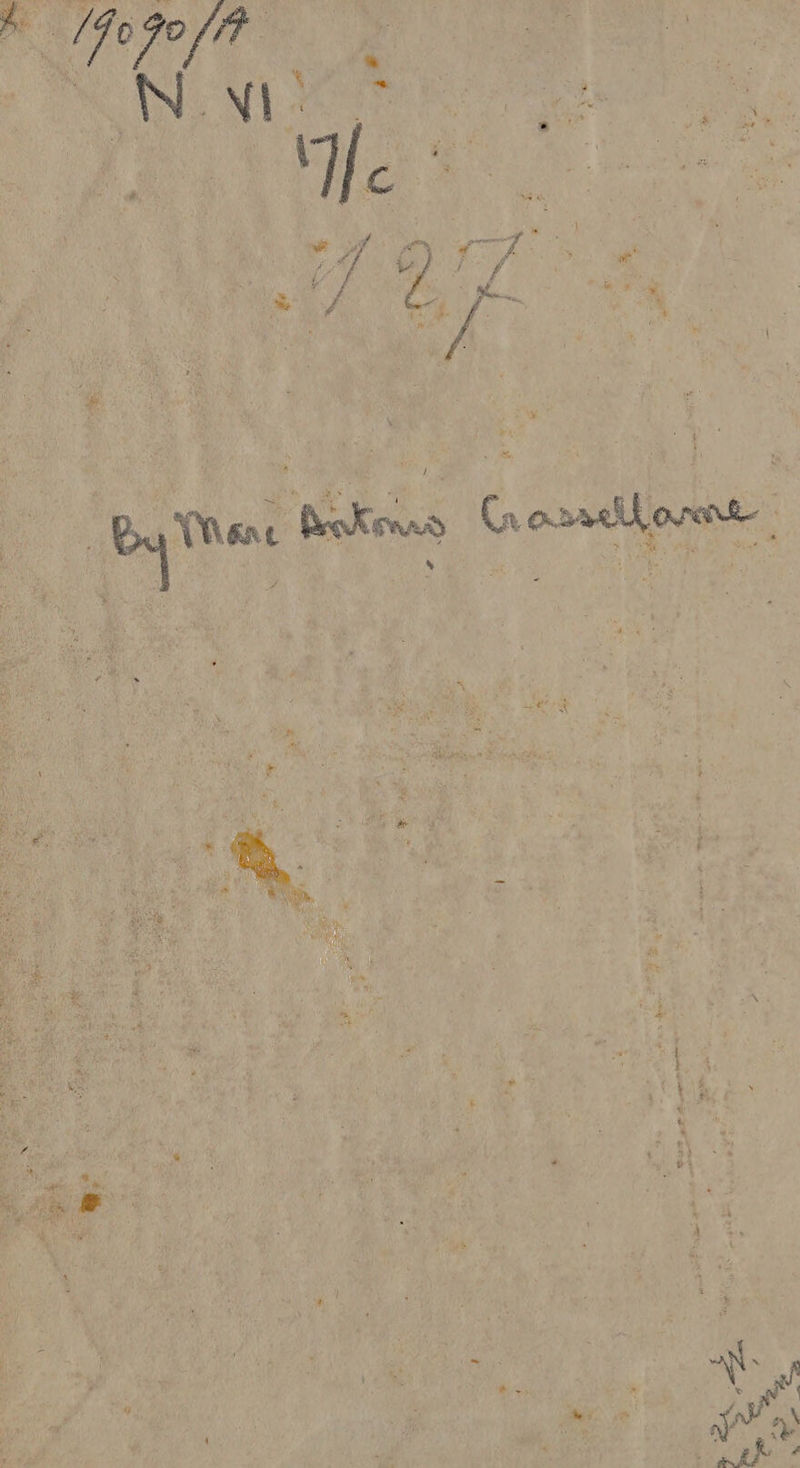 19090/A
N. VI.
17/c
.927
By Marc Antonio Crassellame
W.